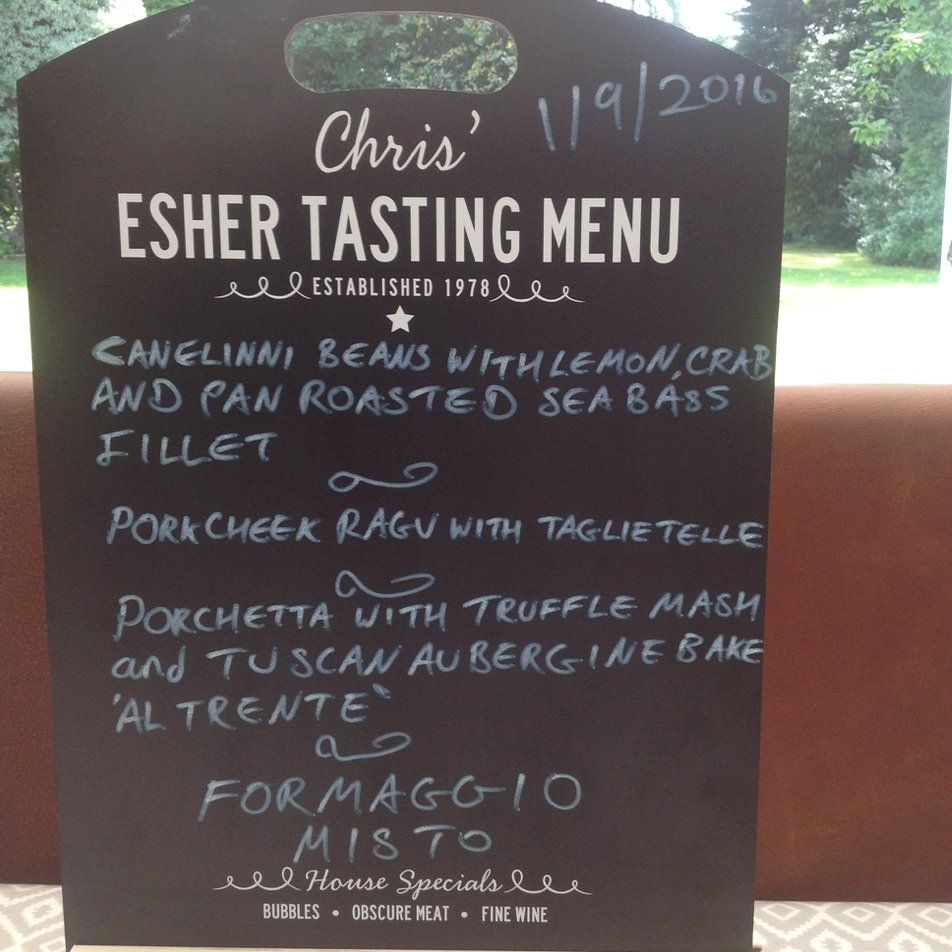 1/9/2016
Chris'
ESHER TASTING MENU
ESTABLISHED 1978
CANELINNI BEANS WITH LEMON, CRAB
AND PAN ROASTED SEA BASS
FILLET
PORK CHEEK RAGU WITH TAGLIETELLE
PORCHETTA WITH TRUFFLE MASH
and TUSCAN AUBERGINE BAKE
'AL TRENTE'
FORMAGGIO
MISTO
House Specials
BUBBLES • OBSCURE MEAT • FINE WINE